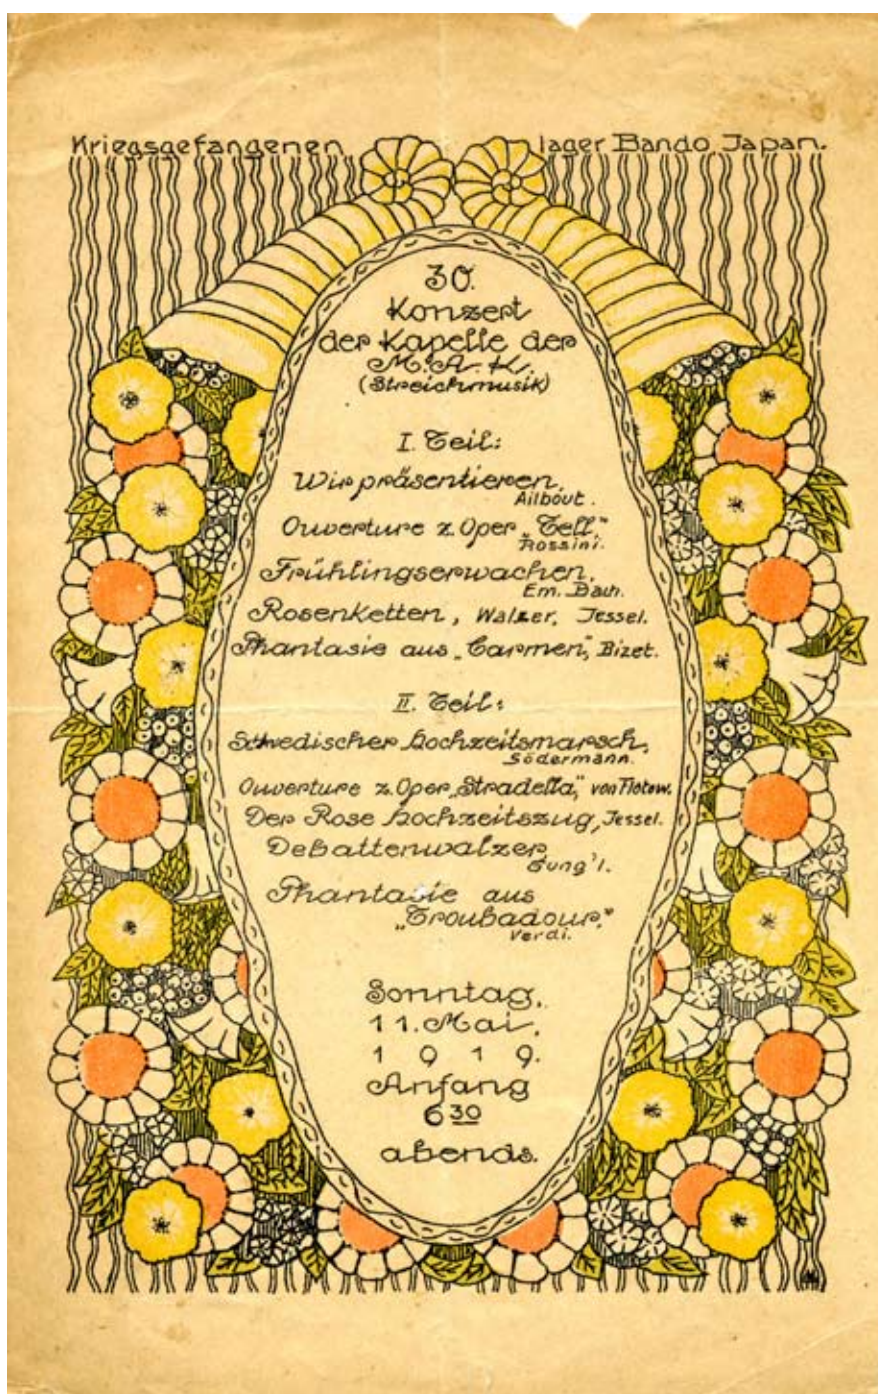 Kriegsgefangenen lager Bando Japan.
30.
Konzert
der Kapelle der
M.A.K.
(Streichmusik)
I. Teil:
Wir präsentieren,
Ailbout.
Ouverture z. Oper „Tell,“
Rossini.
Frühlingserwachen,
Em. Bach.
Rosenketten, Walzer, Jessel.
Phantasie aus „Carmen“, Bizet.
II. Teil:
Schwedischer Hochzeitsmarsch,
Södermann.
Ouverture z. Oper „Stradella“, von Flotow.
Der Rose Hochzeitszug, Jessel.
Debattenwalzer
Gung'l.
Phantasie aus
„Troubadour,“
Verdi.
Sonntag,
11. Mai,
1919.
Anfang
6 30
abends.